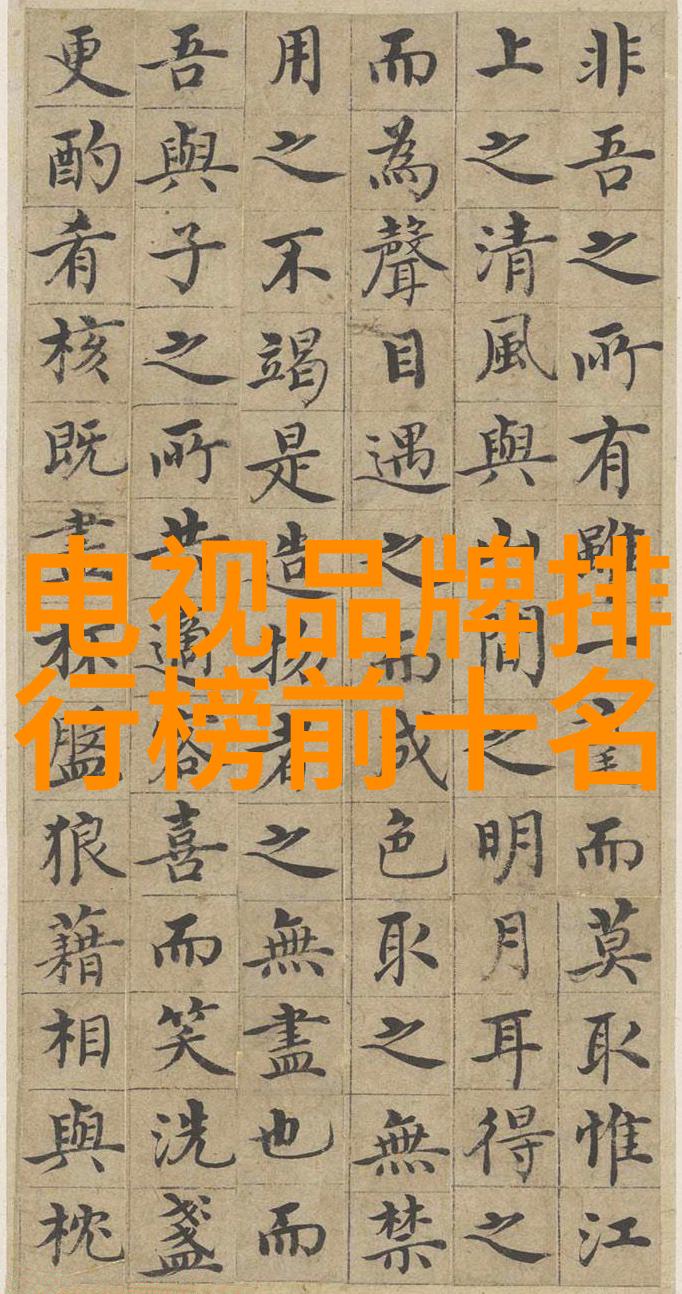 非吾之所有雖一毫而莫取惟江
上之清風與山間之明月耳得之
而為聲目遇之而成色取之無禁
用之不竭是造物者之無盡也而
吾與子之所共適客喜而笑洗盞
更酌肴核既盡杯盤狼藉相與枕
电视品牌排
行榜前十名